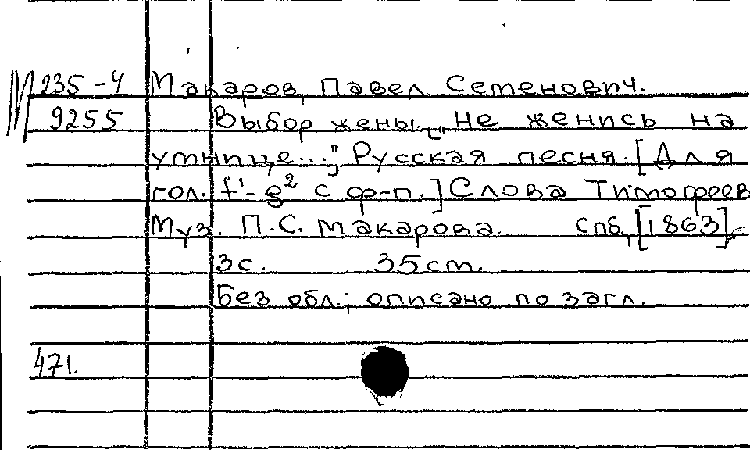 М 235-4 Макаров, Павел Семенович.
9255 Выбор жены. „Не женись на
умнице...", Русская песня. [Для
гол. f¹-g² с ф-п.] Слова Тимофеев
Муз. П.С. Макарова. Спб, [1863],
3с. 35см.
Без обл.; описано по загл.
471.